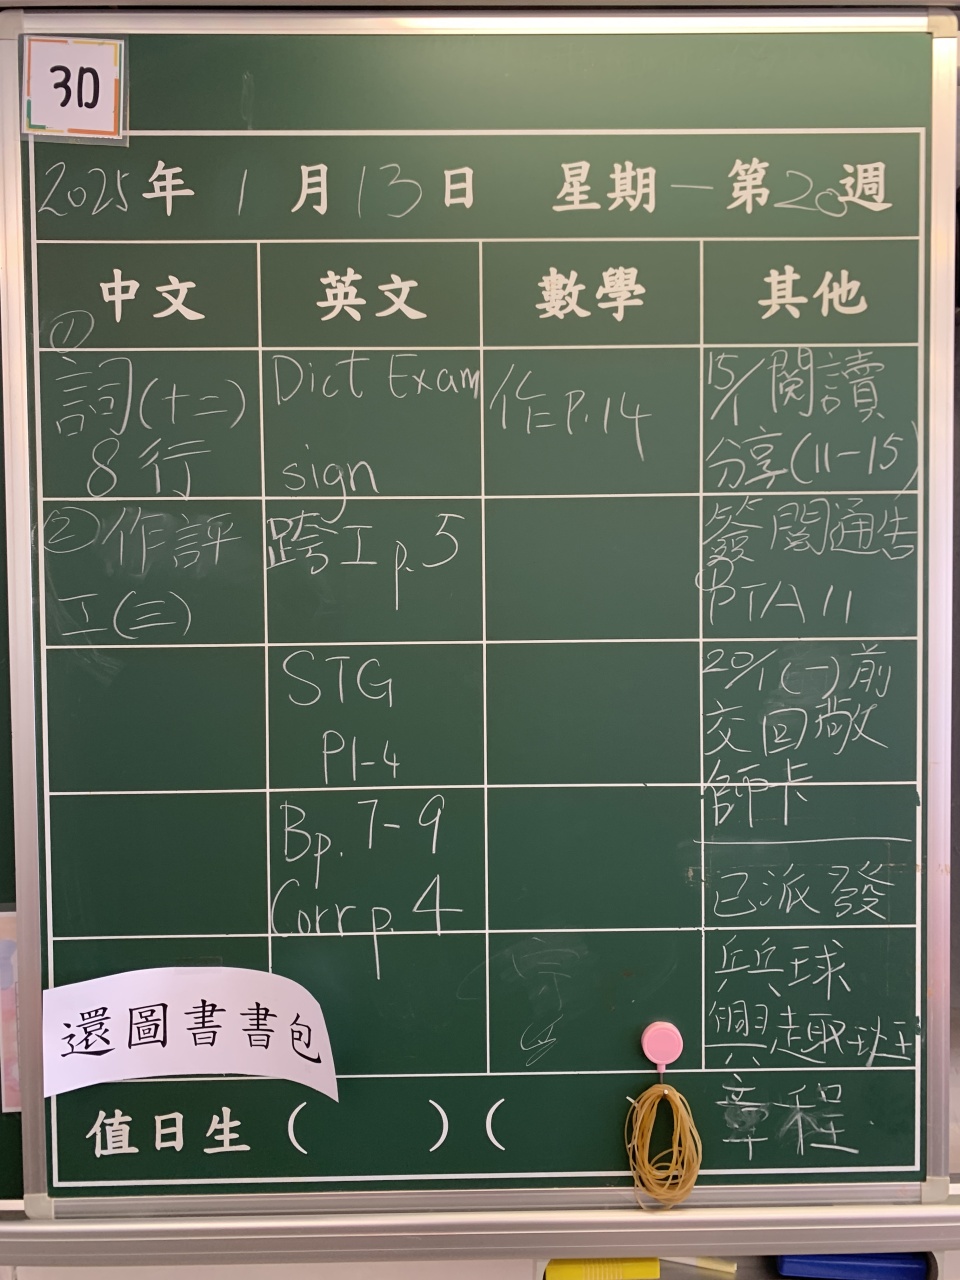 3D
2025年 1月13日 星期一 第20週
中文 英文 數學 其他
①
詞(十二)
8行
②作評
工(三)
Dict Exam
sign
跨工p.5
STG
P1-4
Bp.7-9
Corr p.4
作P.14
15/1閱讀
分享(11-15)
簽閱通告
PTA11
20/1(一)前
交回敬
師卡
已派發
乒乓球
興趣班
章程
還圖書書包
值日生( )(